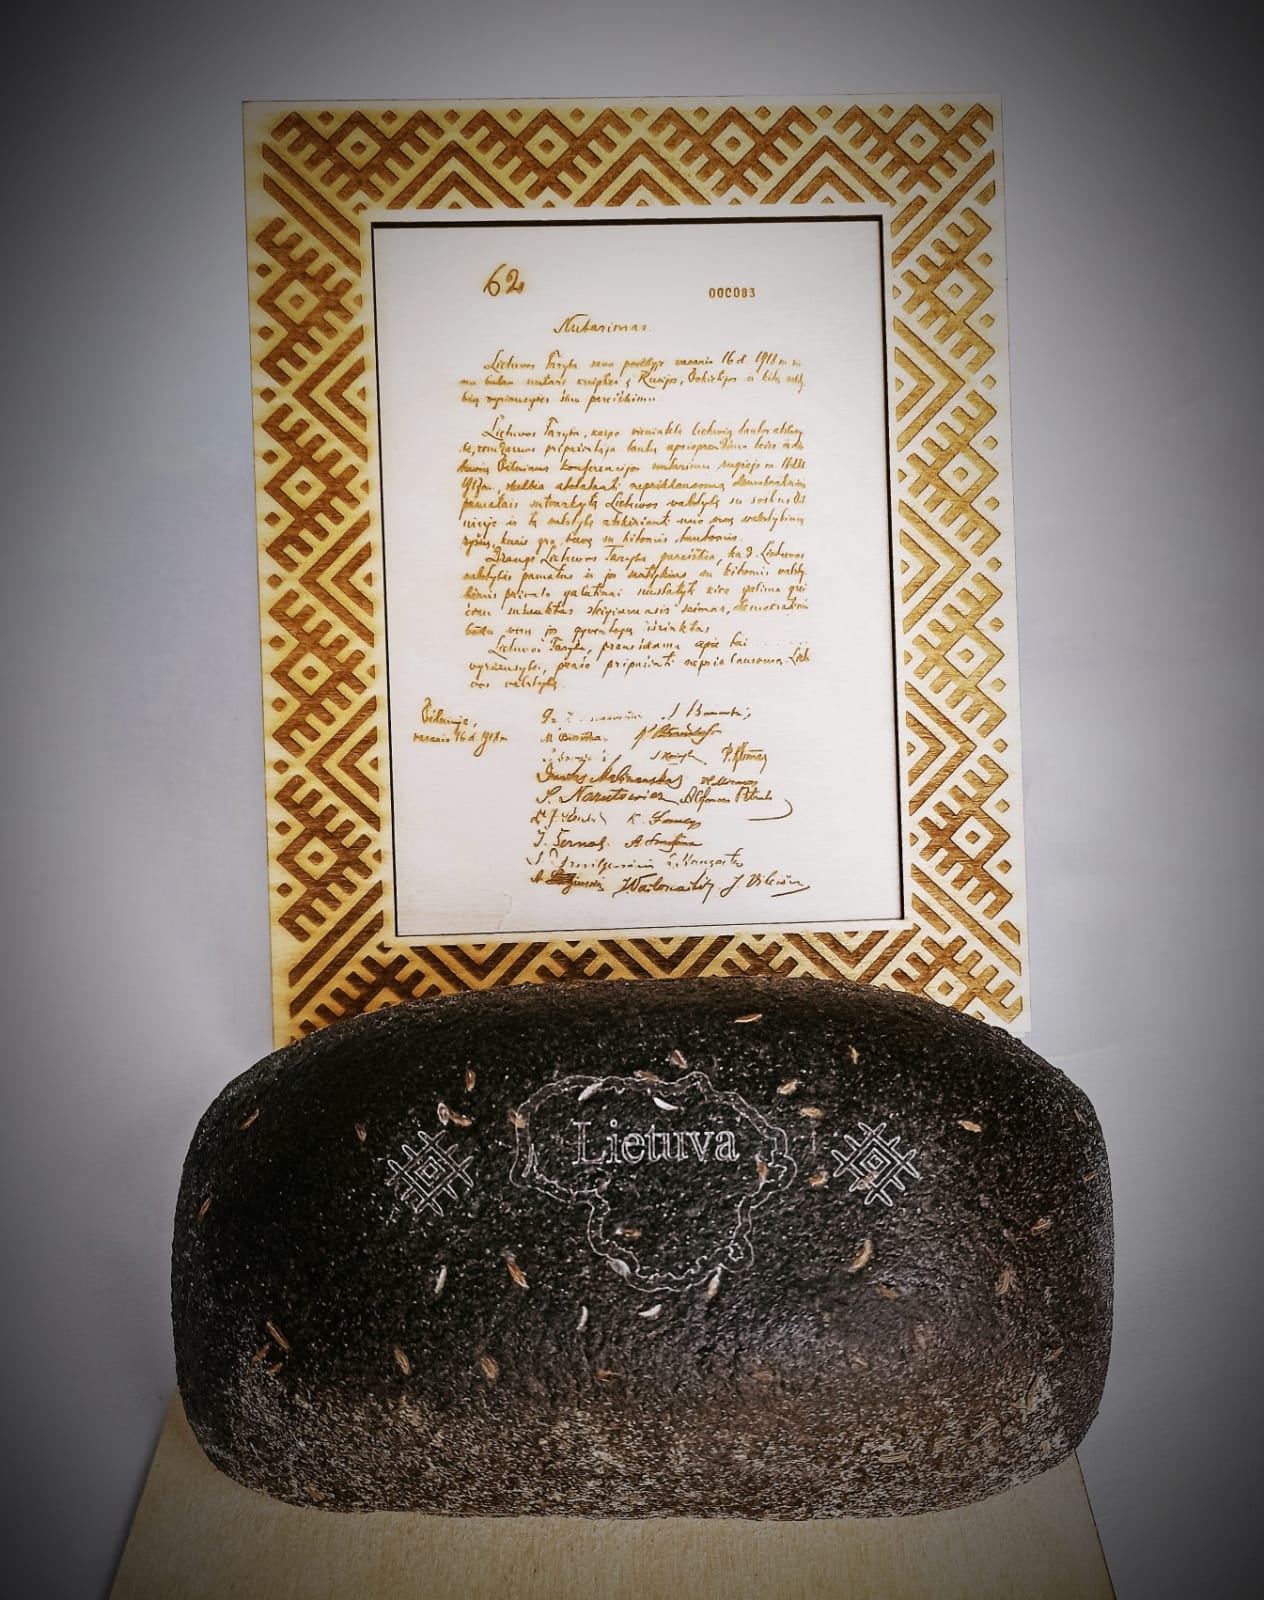 62
000083
Nutarimas.
Lietuvos Taryba savo posėdyje vasario 16 d. 1918 m. vie
nu balsu nutarė kreiptis į Rusijos, Vokietijos ir kitų vals
bių vyriausybes šiuo pareiškimu:
Lietuvos Taryba, kaipo vienintelė lietuvių tautos atstovy
bė, remdamos pripažintąja tautų apsisprendimo teise ir lie
tuvių Vilniaus konferencijos nutarimu rugsėjo m. 18-23 d.
1917 m. skelbia atstatanti nepriklausomą demokratiniais
pamatais sutvarkytą Lietuvos valstybę su sostine Vil
niuje ir tą valstybę atskirianti nuo visų valstybinių
ryšių, kurie yra buvę su kitomis tautomis.
Drauge Lietuvos Taryba pareiškia, kad Lietuvos
valstybės pamatus ir jos santykius su kitomis valsty
bėmis privalo galutinai nustatyti kiek galima grei
čiau sušauktas steigiamasis seimas, demokratiniu
būdu visų jo gyventojų išrinktas.
Lietuvos Taryba, pranešdama apie tai
vyriausybei, prašo pripažinti nepriklausomą Lietu
vos valstybę.
Vilniuje,
vasario 16 d. 1918 m.
J. Basanavičius S. Banaitis
M. Biržiška K. Bizauskas
P. Klimas
Donatas Malinauskas
S. Narutowicz Alfonsas Petrulis
K. Šaulys
J. Šernas A. Smetona
J. Smilgevičius
J. Vailokaitis J. Vileišis
Lietuva